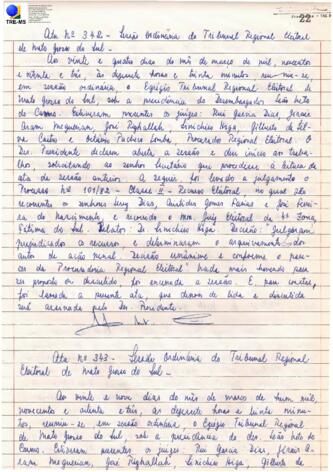 TRE-MS
22
Ata Nº 342 - Sessão Ordinária do Tribunal Regional Eleitoral
de Mato Grosso do Sul -
Ao vinte e quatro dias do mês de março de mil, novecentos
e oitenta e três, às dezessete horas e trinta minutos reuniu-se,
em sessão ordinária, o Egrégio Tribunal Regional Eleitoral de
Mato Grosso do Sul, sob a presidência do Desembargador Leão Neto
do Carmo. Estiveram presentes os juízes: Rui Garcia Dias,
, José Righallah,
e Pacheco Lomba, Procurador Regional Eleitoral. O
Sr. Presidente declarou aberta a sessão e deu início aos traba-
lhos, solicitando ao senhor Secretário que procedesse a leitura da
ata da sessão anterior. A seguir foi levado a julgamento o
Processo Nº 101/82 - Classe II - Recurso Eleitoral - no qual são
recorrentes os senhores Luiz Dias, Gomes Farias e José
do Nascimento e recorrido o MM. Juiz Eleitoral da Zona,
Fátima do Sul. Relator: Dr. Decisão: Julgaram
prejudicado o recurso e determinaram o arquivamento dos
autos de ação penal. Decisão unânime e conforme o pare-
cer da Procuradoria Regional Eleitoral. Nada mais havendo para
ser proposto ou discutido, foi encerrada a sessão. E, para constar,
foi lavrada a presente ata, que depois de lida e discutida
será assinada pelo Sr. Presidente.
Ata Nº 343 - Sessão Ordinária do Tribunal Regional
Eleitoral de Mato Grosso do Sul -
Ao vinte e nove dias do mês de março de hum mil,
novecentos e oitenta e três, às dezessete horas e trinta minu-
tos, reuniu-se, em sessão ordinária, o Egrégio Tribunal Regional
de Mato Grosso do Sul, sob a presidência do Des. Leão Neto
do Carmo. Estiveram presentes os juízes: Rui Garcia Dias,
, José Righallah, , Gilberto de